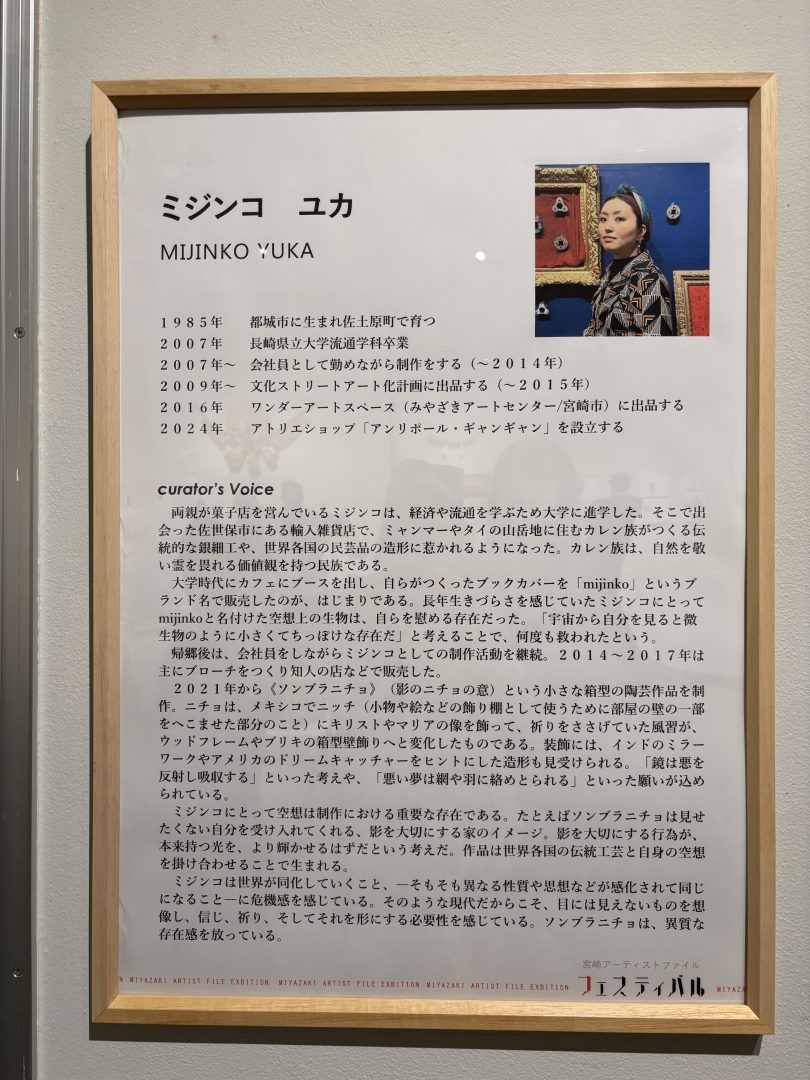 ミジンコ　ユカ
MIJINKO YUKA
１９８５年　都城市に生まれ佐土原町で育つ
２００７年　長崎県立大学流通学科卒業
２００７年～　会社員として勤めながら制作をする（～２０１４年）
２００９年～　文化ストリートアート化計画に出品する（～２０１５年）
２０１６年　ワンダーアートスペース（みやざきアートセンター/宮崎市）に出品する
２０２４年　アトリエショップ「アンリポール・ギャンギャン」を設立する
curator's Voice
　両親が菓子店を営んでいるミジンコは、経済や流通を学ぶため大学に進学した。そこで出
会った佐世保市にある輸入雑貨店で、ミャンマーやタイの山岳地に住むカレン族がつくる伝
統的な銀細工や、世界各国の民芸品の造形に惹かれるようになった。カレン族は、自然を敬
い霊を畏れる価値観を持つ民族である。
　大学時代にカフェにブースを出し、自らがつくったブックカバーを「mijinko」というブ
ランド名で販売したのが、はじまりである。長年生きづらさを感じていたミジンコにとって
mijinkoと名付けた空想上の生物は、自らを慰める存在だった。「宇宙から自分を見ると微
生物のように小さくてちっぽけな存在だ」と考えることで、何度も救われたという。
　帰郷後は、会社員をしながらミジンコとしての制作活動を継続。２０１４～２０１７年は
主にブローチをつくり知人の店などで販売した。
　２０２１年から《ソンブラニチョ》（影のニチョの意）という小さな箱型の陶芸作品を制
作。ニチョは、メキシコでニッチ（小物や絵などの飾り棚として使うために部屋の壁の一部
をへこませた部分のこと）にキリストやマリアの像を飾って、祈りをささげていた風習が、
ウッドフレームやブリキの箱型壁飾りへと変化したものである。装飾には、インドのミラー
ワークやアメリカのドリームキャッチャーをヒントにした造形も見受けられる。「鏡は悪を
反射し吸収する」といった考えや、「悪い夢は網や羽に絡めとられる」といった願いが込め
られている。
　ミジンコにとって空想は制作における重要な存在である。たとえばソンブラニチョは見せ
たくない自分を受け入れてくれる、影を大切にする家のイメージ。影を大切にする行為が、
本来持つ光を、より輝かせるはずだという考えだ。作品は世界各国の伝統工芸と自身の空想
を掛け合わせることで生まれる。
　ミジンコは世界が同化していくこと、―そもそも異なる性質や思想などが感化されて同じ
になること―に危機感を感じている。そのような現代だからこそ、目には見えないものを想
像し、信じ、祈り、そしてそれを形にする必要性を感じている。ソンブラニチョは、異質な
存在感を放っている。
宮崎アーティストファイル
N MIYAZAKI ARTIST FILE EXBITION MIYAZAKI ARTIST FILE EXBITION MIYAZAKI ARTIST FILE EXBITION フェスティバル MIYAZA